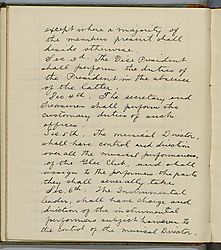 except where a majority of
the members present shall
decide otherwise.
Sec. 3th. The Vice President
shall perform the duties of
the President in the absence
of the latter.
Sec. 4th. The Secretary and
Treasurer shall perform the
customary duties of such
offices.
Sec. 5th. The Musical Director,
shall have control and direction
over all the musical performances
of the Glee Club, and shall
assign to the performers the parts
they shall severally take.
Sec. 6th. The Instrumental
leader, shall have charge and
direction of the instrumental
performances subject however to
the control of the Musical Director.